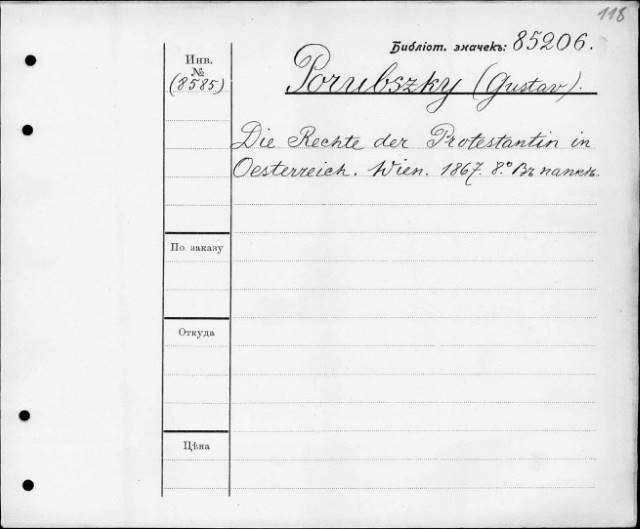 118
Библіот. значекъ: 85206.
Инв.
№
(8585)
Porubszky (Gustav).
Die Rechte der Protestantin in
Oesterreich. Wien. 1867. 8.º Въ папкѣ.
По заказу
Откуда
Цѣна